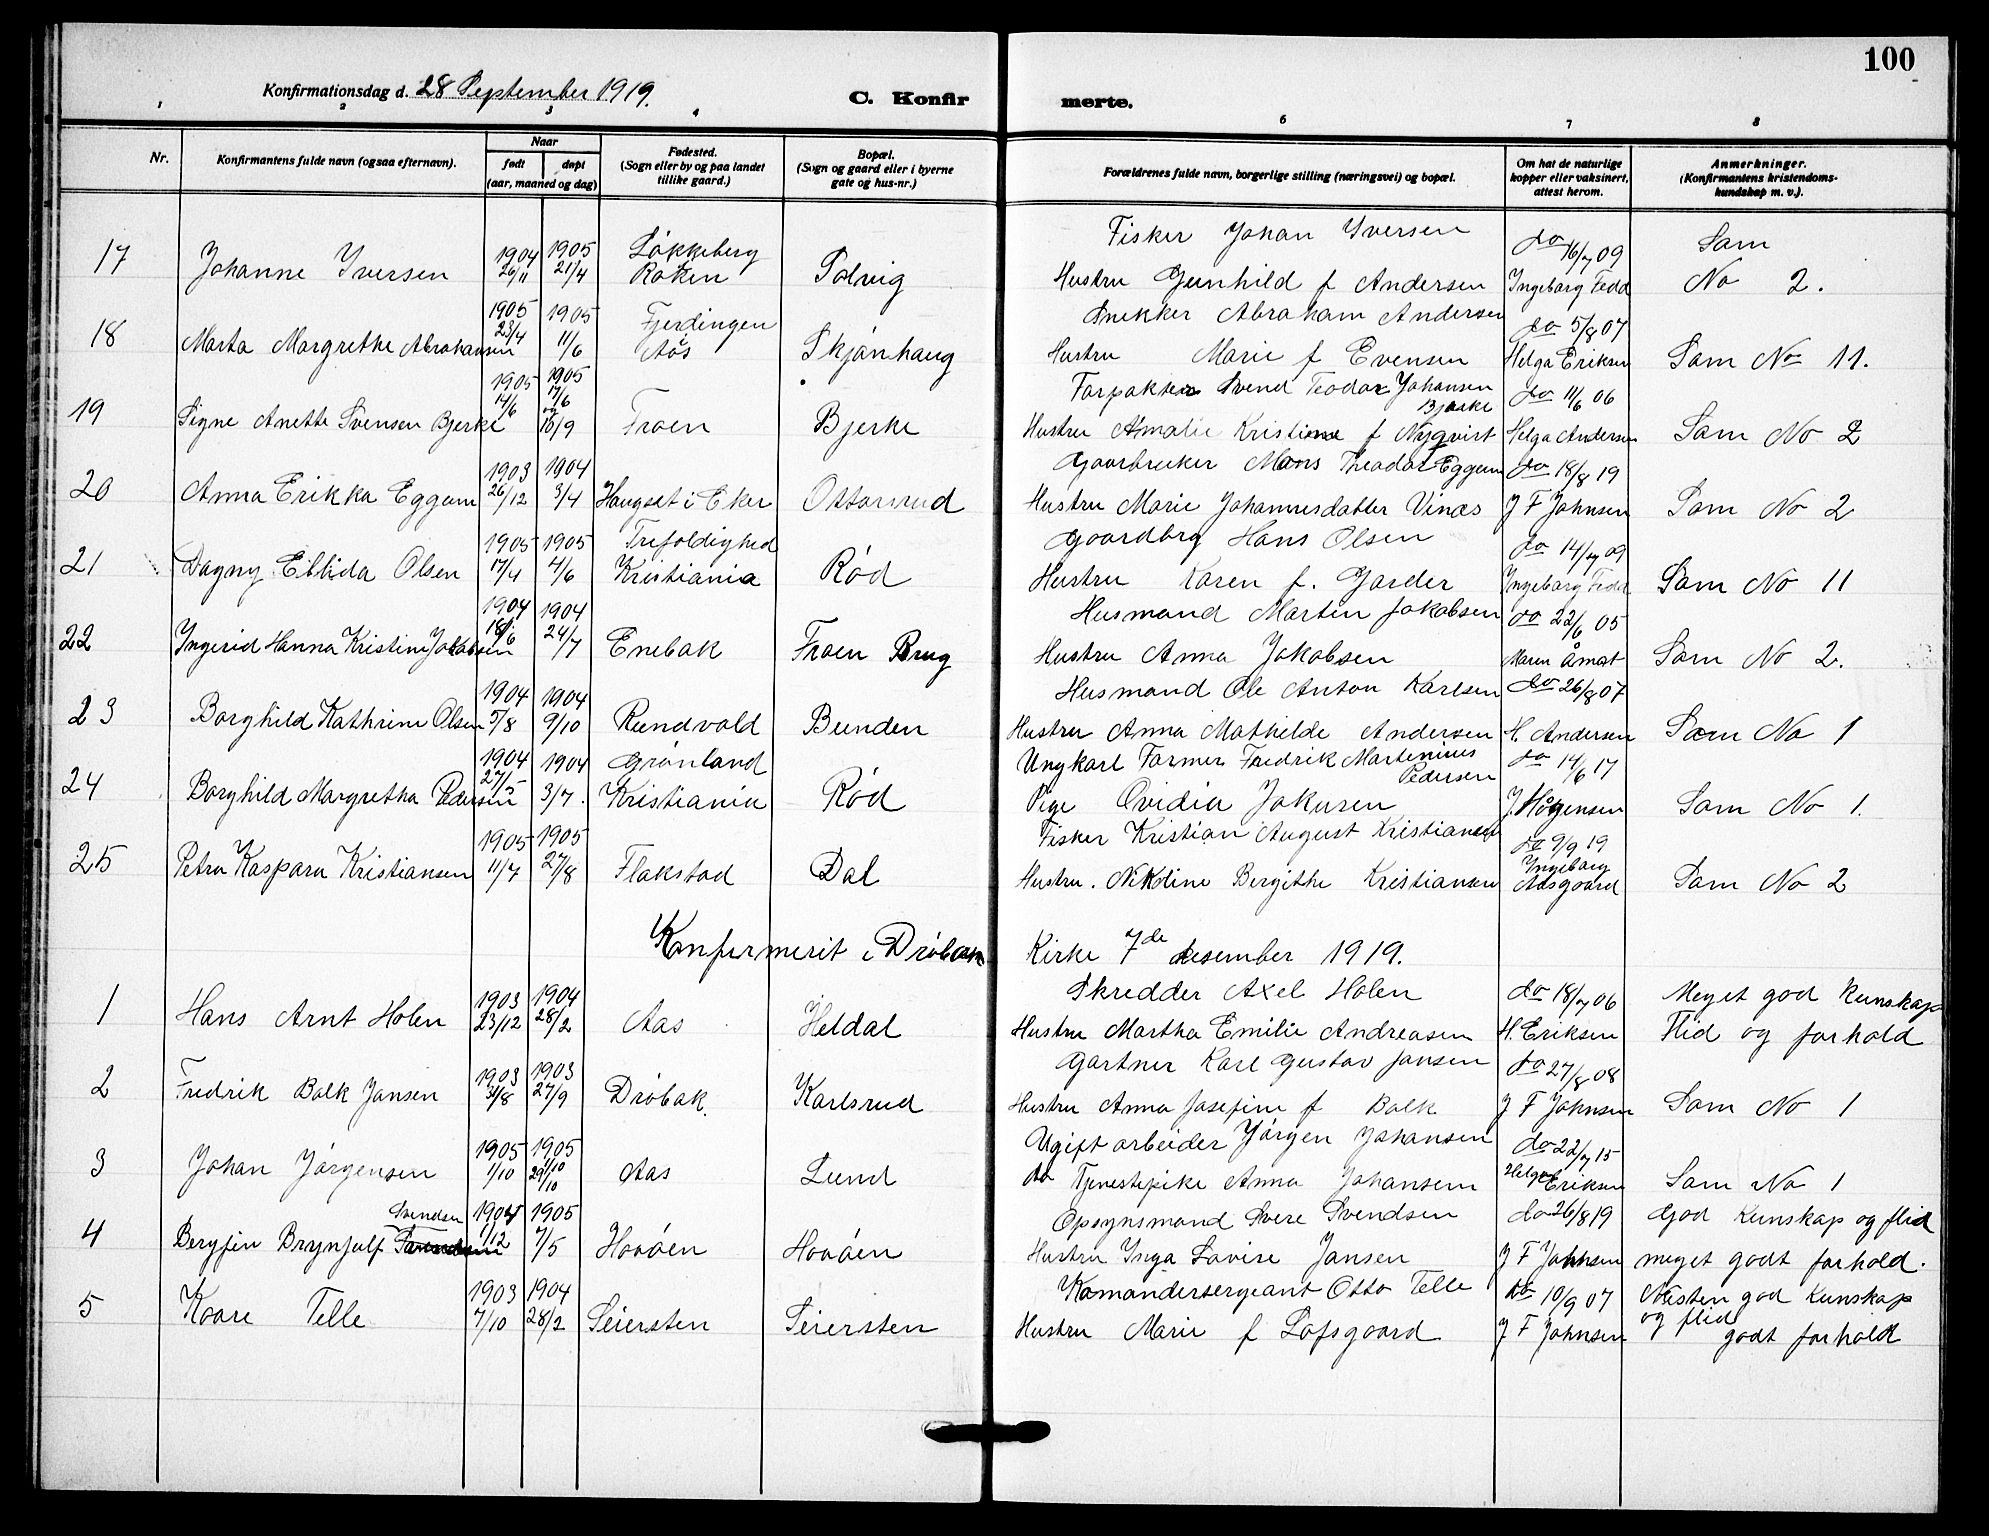 100
Konfirmationsdag d. 28 September 1919.
C. Konfir merte.
1 2 3 4 6 7 8
Nr.
Konfirmantens fulde navn (ogsaa efternavn).
Naar
født døpt
(aar, maaned og dag)
Fødested.
(Sogn eller by og paa landet
tillike gaard.)
Bopæl.
(Sogn og gaard eller i byerne
gate og hus-nr.)
Forældrenes fulde navn, borgerlige stilling (næringsvei) og bopæl.
Om hat de naturlige
kopper eller vaksinert,
attest herom.
Anmerkninger.
(Konfirmantens kristendoms-
kundskap m. v.).
Fisker Johan Iversen do 16/7 09 Som
1904 1905 Løkkeberg
17 Johanne Iversen 26/11 21/4 Røken Solvig Hustru Gunhild f Andersen Ingeborg Fedd No 2.
1905 1905 Fjerdingen Snekker Abraham Andersen do 5/8 07
18 Marta Margrethe Abrahamsen 23/4 11/6 Aas Skjønhaug Hustru Marie f Evensen Helga Eriksen Som No 11.
1905 1905 Forpakter Svend Teodor Johansen do 11/6 06
14/6 17/6 og Bjerke
19 Signe Anette Svensen Bjerke 16/9 Froen Bjerke Hustru Amalie Kristine f Nyqvist Helga Andersen Som No 2
1903 1904 Gaarbruker Mons Theodor Eggum do 18/8 19
20 Anna Erikka Eggum 26/12 3/4 Haugset i Eker Ottarsrud Hustru Marie Johannesdatter Vinæs J F Johnsen Som No 2
1905 1905 Trefoldighed Gaardbrg Hans Olsen do 14/7 09
21 Dagny Ellida Olsen 17/4 4/6 Kristiania Rød Hustru Karen f. Garder Ingeborg Fedd Som No 11
1904 1904 Husmand Martin Jakobsen do 22/6 05
22 Ingerid Hanna Kristine Jakobsen 18/6 24/7 Enebak Froen Brug Hustru Anna Jakobsen Maren Åmot Som No 2.
1904 1904 Husmand Ole Anton Karlsen do 26/8 07
23 Borghild Kathrine Olsen 5/8 9/10 Rundvold Bunden Hustru Anna Mathilde Andersen H. Andersen Som No 1
1904 1904 Grønland Ungkarl Former Fredrik Martinius do 14/6 17
Pedersen
24 Borghild Margretha Pedersen 27/5 3/7. Kristiania Rød Pige Ovidia Jakusen J. Hågensen Som No 1.
1905 1905 Fisker Kristian August Kristiansen do 9/9 19
Ingeborg
25 Petra Kaspara Kristiansen 11/7 27/8 Flakstad Dal Hustru. Nikoline Bergithe Kristiansen Aasgaard Som No 2
Konfirmerit i Drøbak Kirke 7de desember 1919.
1903 1904 Skredder Axel Holen do 18/7 06 Meget god kunskap
1 Hans Arnt Holen 23/12 28/2 Aas Heldal Hustru Martha Emilie Andreasen H. Eriksen Flid og forhold
1903 1903 Gartner Karl Gustav Jansen do 27/8 08
2 Fredrik Balk Jansen 31/8 27/9 Drøbak. Karlsrud Hustru Anna Josefine f Balk J F Johnsen Som No 1
1905 1905 Ugift arbeider Jørgen Johansen do 22/7 15
3 Johan Jørgensen 1/10 29/10 Aas Lund do Tjenestepike Anna Johansen Helga Eriksen Som No 1
Svendsen 1904 1905 Opsynsmand Svere Svendsen do 26/8 19 God kunskap og flid
4 Bergfin Brynjulf 1/12 7/5 Hovøen Hovøen Hustru Inga Lovise Jansen J F Johnsen meget godt forhold.
1903 1904 Komandersergeant Otto Telle do 10/9 07 Næsten god Kunskap
og flid
5 Koare Telle 7/10 28/2 Seiersten Seiersten Hustru Marie f Lofsgaard J F Johnsen godt forhold